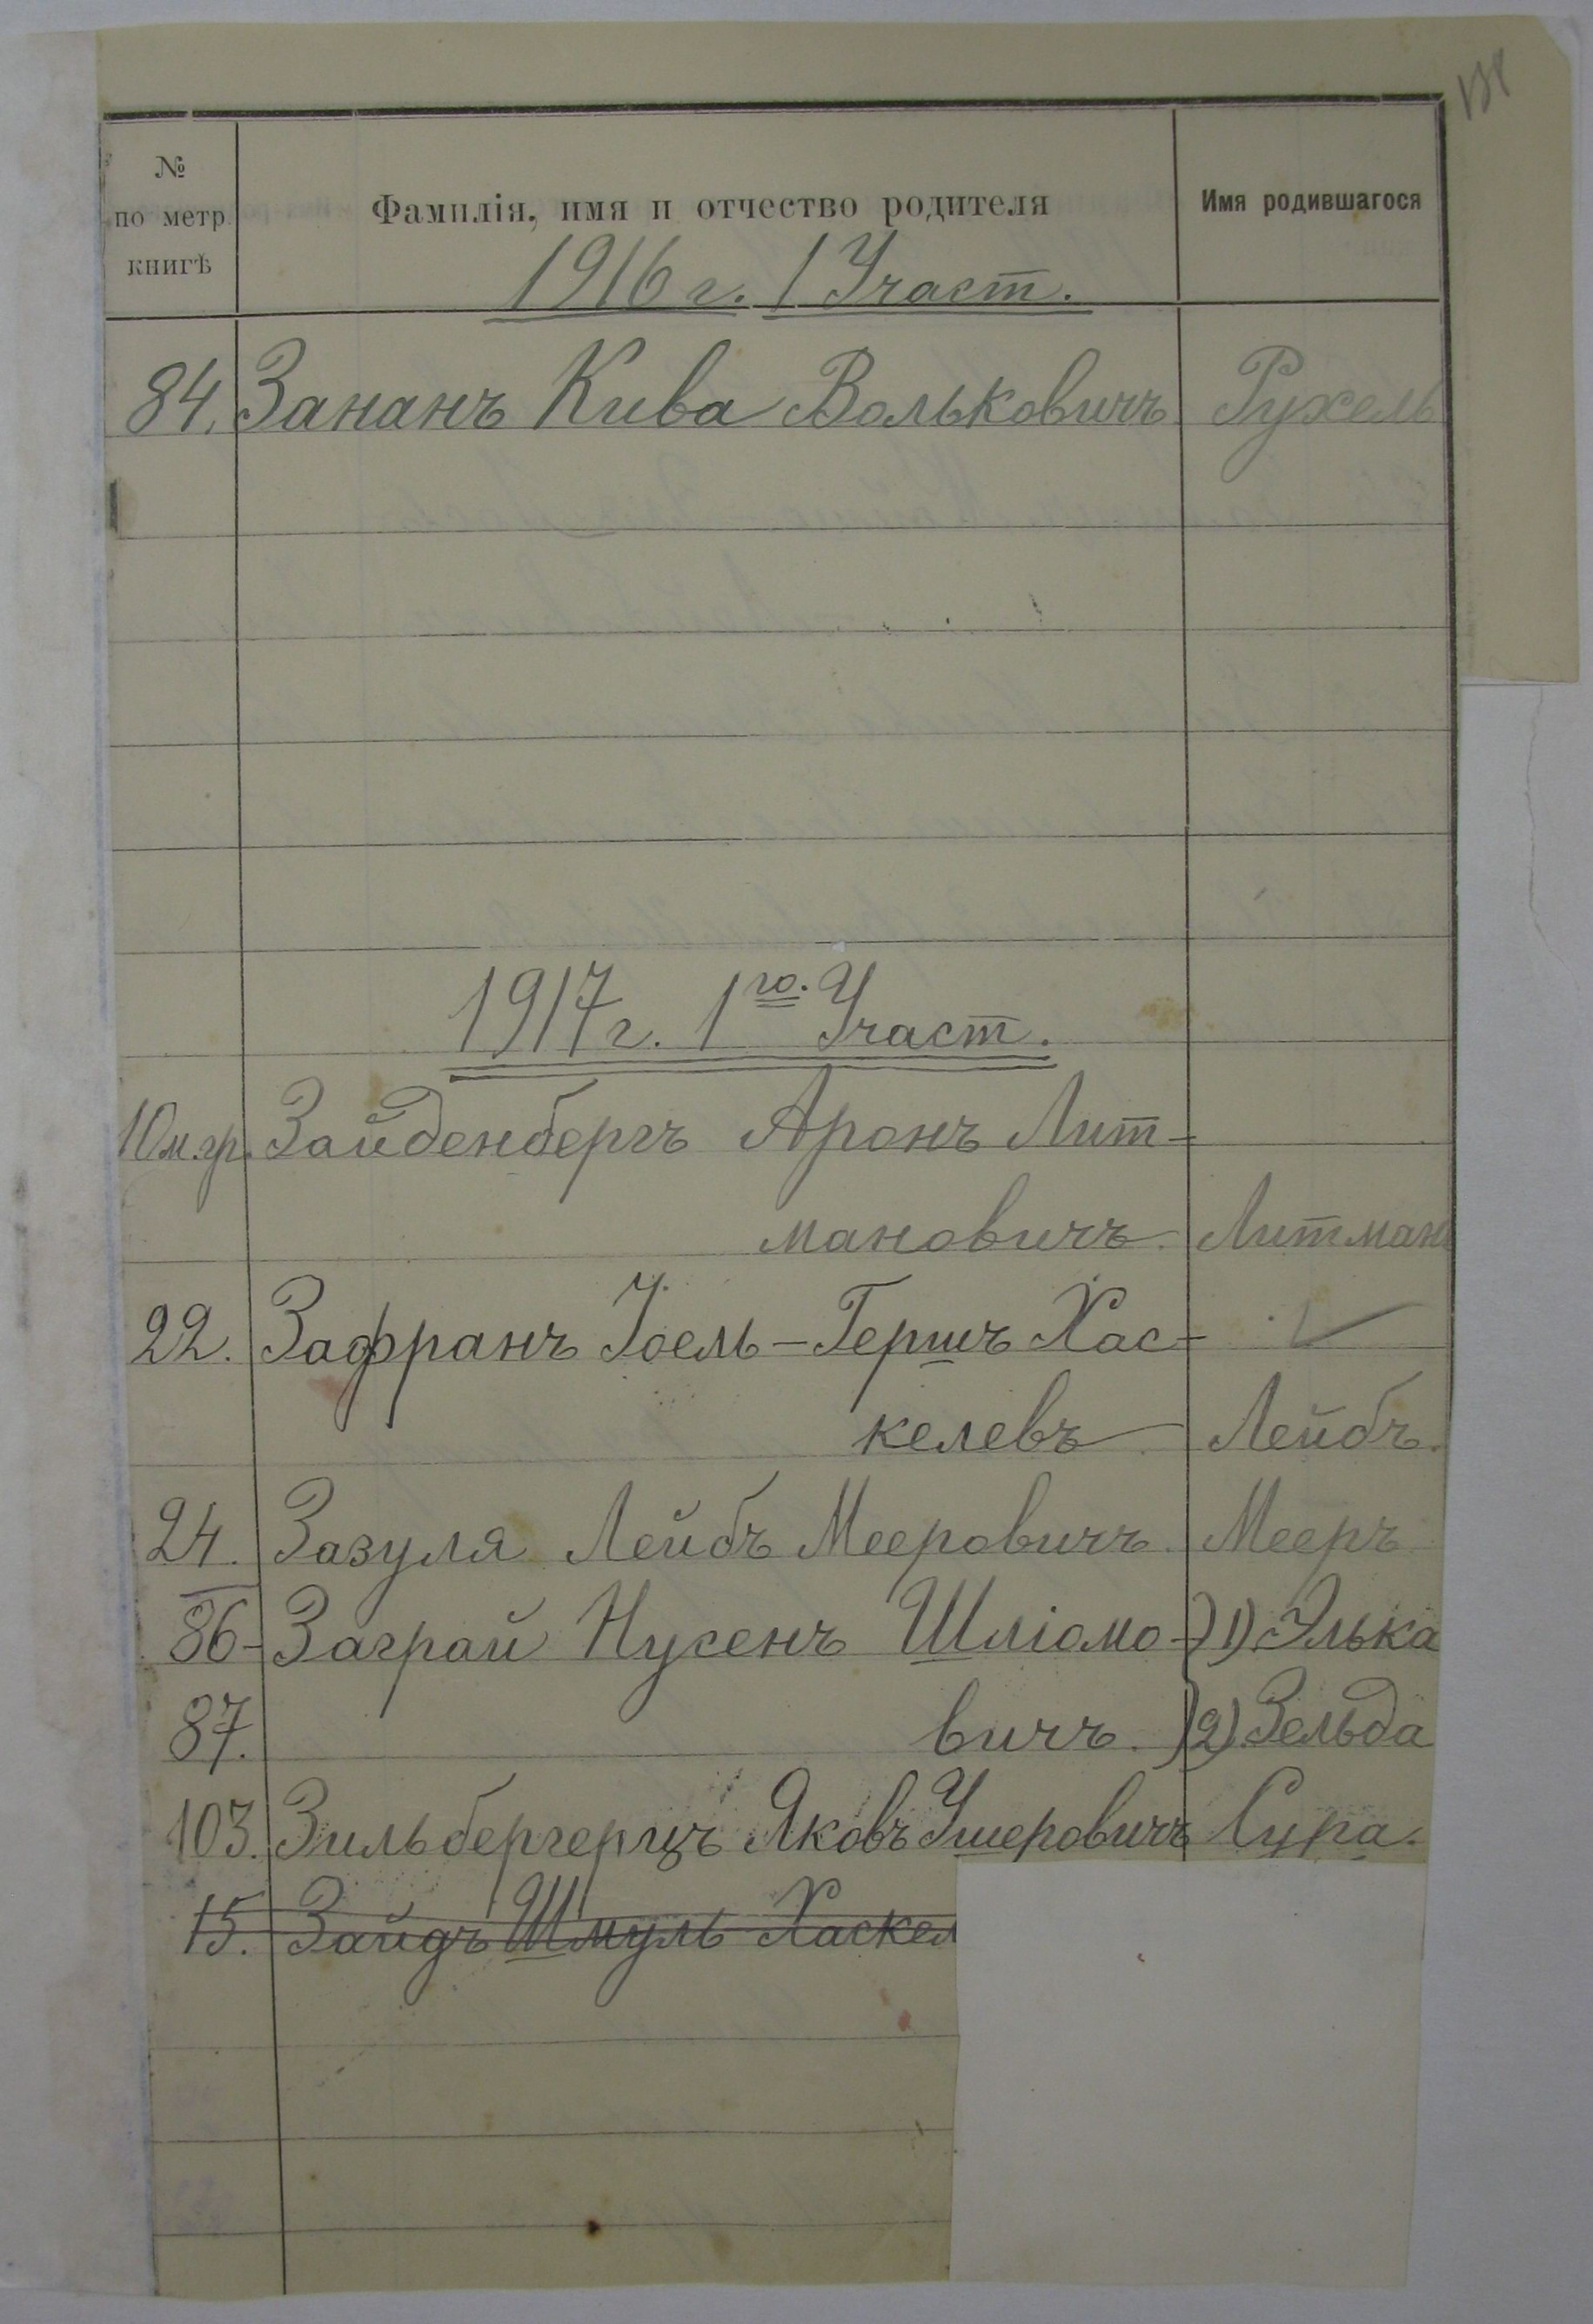 №
по метр.
книгѣ
Фамилія, имя и отчество родителя
Имя родившагося
1916 г. 1 Участ.
84. Зананъ Кива Вольковичъ Рухель
1917 г. 1го. Участ.
10 м.гр. Зайденбергъ Аронъ Лит-
мановичъ. Литманъ
22. Зафранъ Іоель-Гершъ Хас-
келевъ Лейбъ.
24. Зазуля Лейбъ Мееровичъ. Мееръ
86- Заграй Нусенъ Шліомо- 1) Элька
87. вичъ. 2) Зельда
103. Зильбергерцъ Яковъ Ушеровичъ Сура.
15. Зайдъ Шмуль Хаскел